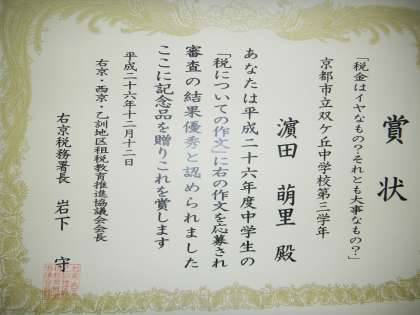 賞状
「税金はイヤなもの？それとも大事なもの？」
京都市立双ヶ丘中学校第三学年
濵田 萌里 殿
あなたは平成二十六年度中学生の
「税についての作文」に右の作文を応募され
審査の結果優秀と認められました
ここに記念品を贈りこれを賞します
平成二十六年十二月十二日
右京・西京・乙訓地区租税教育推進協議会会長
右京税務署長 岩下 守